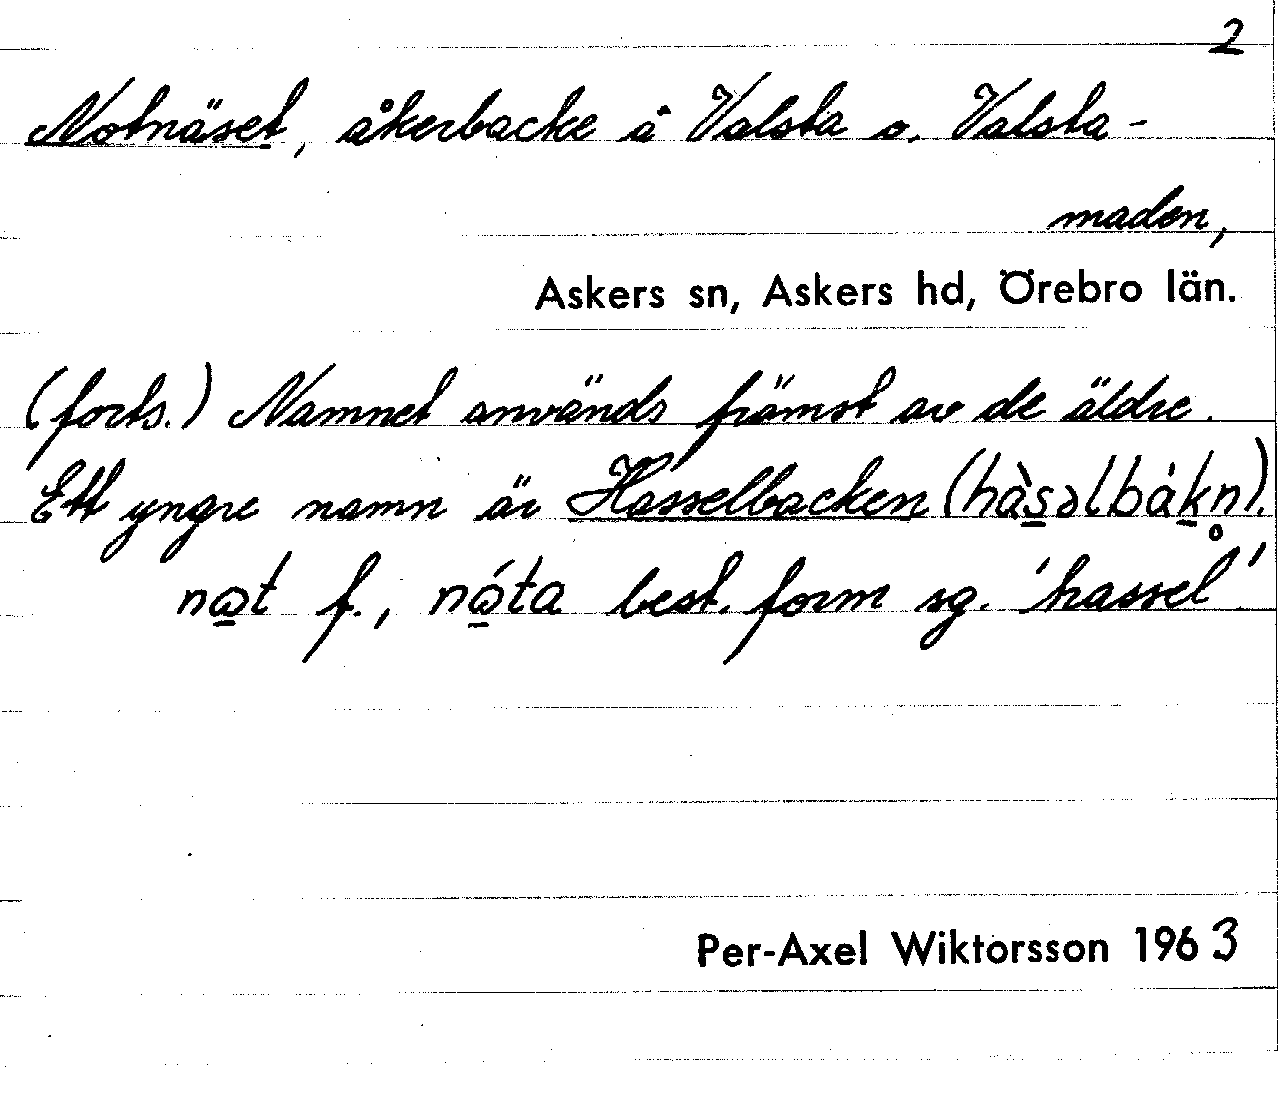 2
Notnäset, åkerbacke å Valsta o. Valsta-
maden,
Askers sn, Askers hd, Örebro län.
(forts.) Namnet används främst av de äldre.
Ett yngre namn är Hasselbacken (hàs̲əlbák̲n̥).
nɷ̲t f., nɷ̲́ta best. form sg. 'hassel'.
Per-Axel Wiktorsson 1963